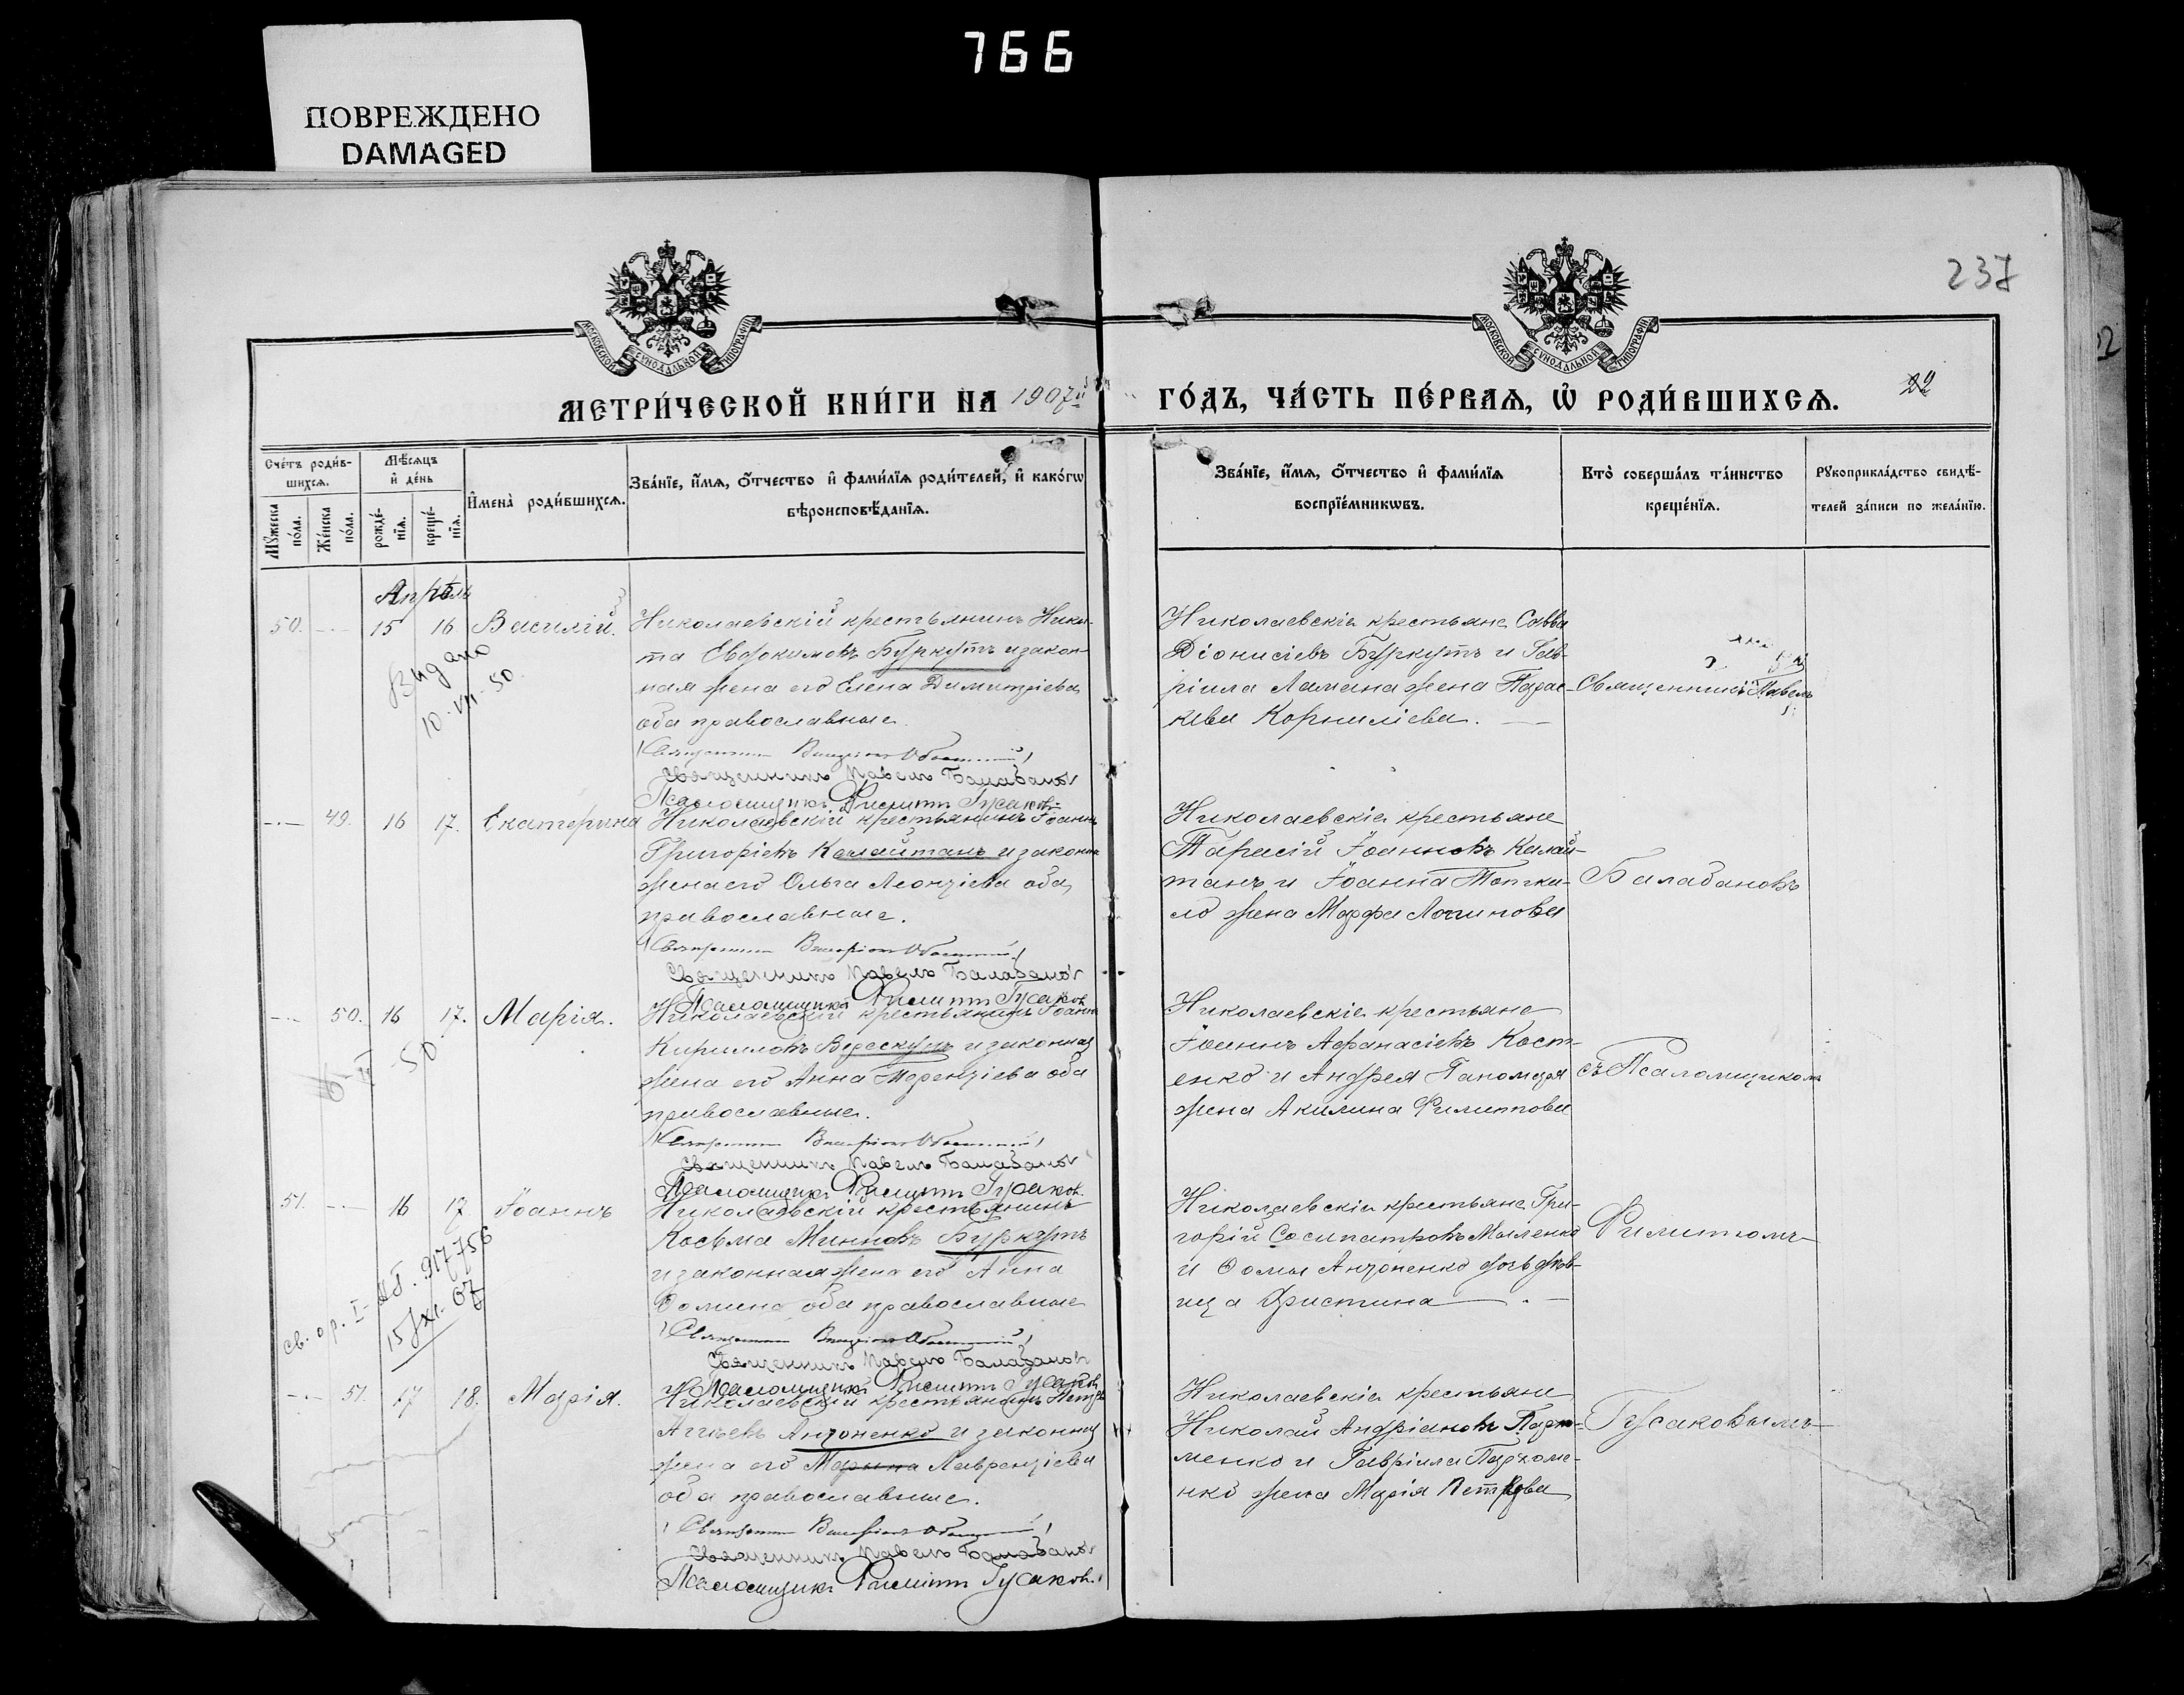 766
ПОВРЕЖДЕНО
DAMAGED
237
22
МОСКОВСКОЙ СУНОДАЛЬНОЙ ТИПОГРАФІИ
МОСКОВСКОЙ СУНОДАЛЬНОЙ ТИПОГРАФІИ
МЕТРИ́ЧЕСКОЙ КНИ́ГИ НА 1907й
ГО́ДЪ, ЧА́СТЬ ПЕ́РВАѦ, Ѡ РОДИ́ВШИХСѦ.
Сче́тъ роди́в-
шихсѧ.
Мѣ́сѧцъ
и҆ де́нь
Мꙋ́жеска
по́ла.
Же́нска
по́ла.
рожде́-
нїѧ.
креще́-
нїѧ.
И҆мена̀ роди́вшихсѧ.
Зва́нїе, и҆́мѧ, ѻ҆́тчество и҆ фами́лїѧ роди́телей, и҆ како́гѡ
вѣроисповѣ́данїѧ.
Зва́нїе, и҆́мѧ, ѻ҆́тчество и҆ фами́лїѧ
воспрїе́мникѡвъ.
Кто̀ соверша́лъ та́инство
креще́нїѧ.
Рꙋкоприкла́дство свидѣ́-
телей за́писи по жела́нїю.
Апрѣль
50. 15 16 Василій.
Николаевскій крестьянинъ Ники-
та Евдокимовъ Буркутъ и закон-
ная жена его Елена Димитріева
оба православные.
Священникъ Павелъ Балабановъ
Псаломщикъ Филиппъ Гусаковъ
Видано
10-VII-50.
Николаевскіе крестьяне Савва
Діонисіевъ Буркутъ и Гав-
ріила Ламана жена Парас-
кева Корниліева.
Священникъ Павелъ
49. 16 17. Екатерина
Николаевскій крестьянинъ Іоаннъ
Григорієвъ Калайтанъ и законная
жена его Ольга Леонтіева оба
православные.
Священникъ Павелъ Балабановъ
Псаломщикъ Филиппъ Гусаковъ
Николаевскіе крестьяне
Тарасій Іоанновъ Калай-
танъ и Іоанна
жена Марфа Логинова
Балабановъ
50. 16 17. Марія.
Николаевскій крестьянинъ Іоаннъ
Кирилловъ и законная
жена его Анна Терентіева оба
православные.
Священникъ Павелъ Балабановъ
Псаломщикъ Филиппъ Гусаковъ
50
Николаевскіе крестьяне
Іоаннъ Афанасіевъ Кост-
енко и Андрея Паномаря
жена Акилина Филиппова
съ Псаломщикомъ
51. 16 17 Іоаннъ
Николаевскій крестьянинъ
Косьма Минновъ Буркутъ
и законная жена его Анна
Ѳомина оба православные
Священникъ Павелъ Балабановъ
Псаломщикъ Филиппъ Гусаковъ
св. ор. I-АБ. 917756
15/XI. 67
Николаевскіе крестьяне Гри-
горій Сосипатровъ Мыленко
и Ѳомы Антоненко дочь дѣв-
ица Христина
Филиппомъ
51. 17 18. Марія.
Николаевскій крестьянинъ Петръ
Антоненко и законная
жена его Марина Лаврентіева
оба православные.
Священникъ Павелъ Балабановъ
Псаломщикъ Филиппъ Гусаковъ.
Николаевскіе крестьяне
Николай Андріановъ Пархо-
менко и Гавріила Пархоме-
нко жена Марія Петрова
Гусаковымъ